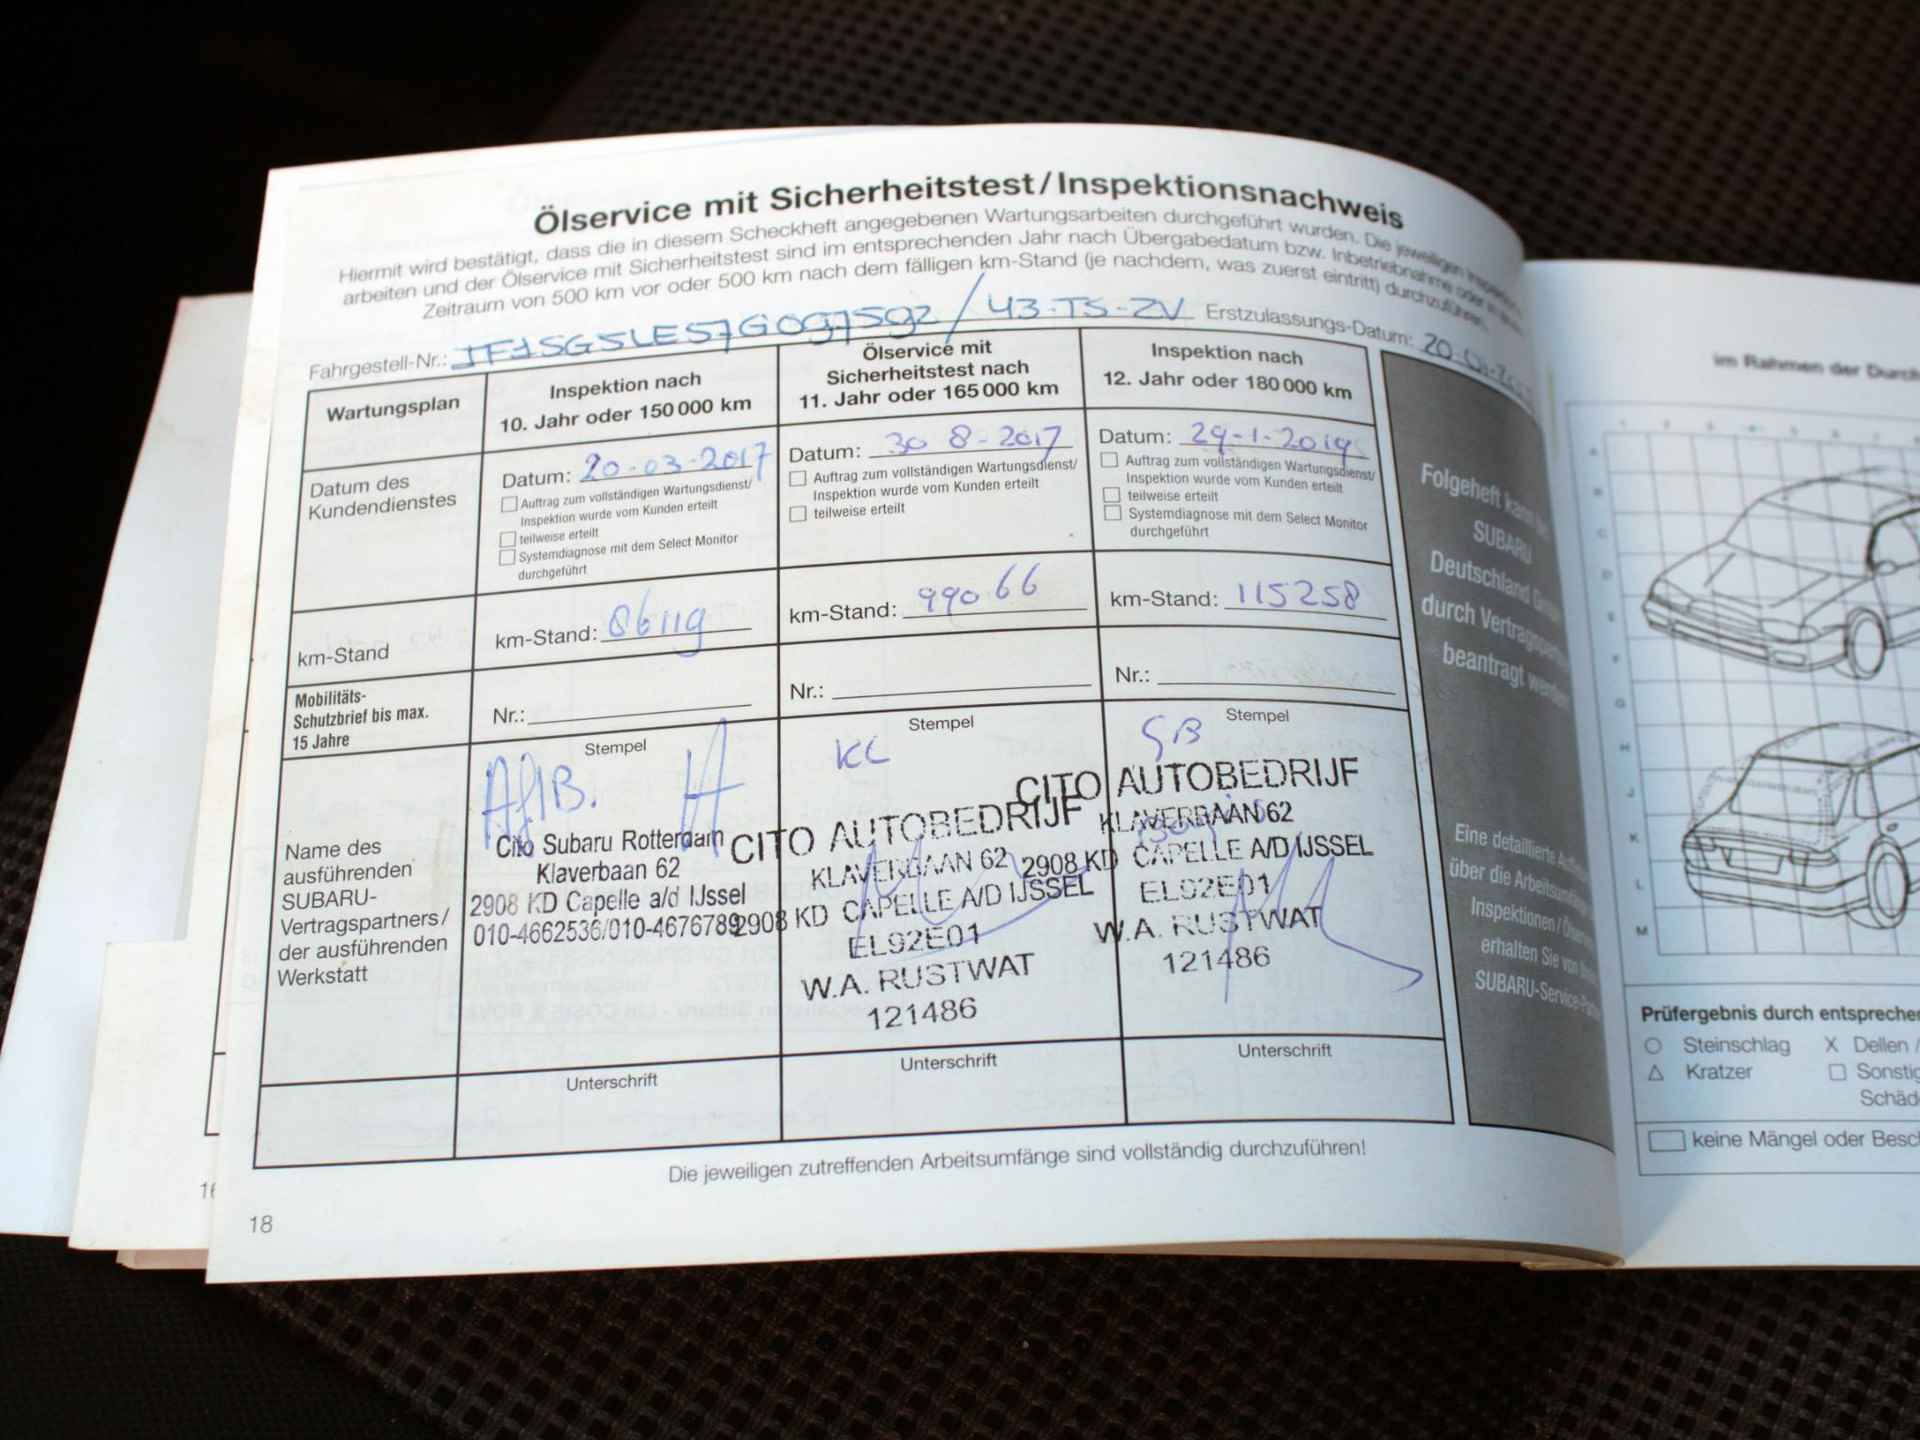 Ölservice mit Sicherheitstest/Inspektionsnachweis
Hiermit wird bestätigt, dass die in diesem Scheckheft angegebenen Wartungsarbeiten durchgeführt wurden. Die jeweiligen
arbeiten und der Ölservice mit Sicherheitstest sind im entsprechenden Jahr nach Übergabedatum bzw. Inbetriebnahme oder
Zeitraum von 500 km vor oder 500 km nach dem fälligen km-Stand (je nachdem, was zuerst eintritt) durchzuführen.
Fahrgestell-Nr.: JF1SG5LE57G097592 / 43-TS-ZV Erstzulassungs-Datum:
Wartungsplan
Inspektion nach
10. Jahr oder 150 000 km
Ölservice mit
Sicherheitstest nach
11. Jahr oder 165 000 km
Inspektion nach
12. Jahr oder 180 000 km
Datum des
Kundendienstes
Datum: 20-03-2017
Auftrag zum vollständigen Wartungsdienst/
Inspektion wurde vom Kunden erteilt
teilweise erteilt
Systemdiagnose mit dem Select Monitor
durchgeführt
Datum: 30 8-2017
Auftrag zum vollständigen Wartungsdienst/
Inspektion wurde vom Kunden erteilt
teilweise erteilt
Datum: 29-1-2019
Auftrag zum vollständigen Wartungsdienst/
Inspektion wurde vom Kunden erteilt
teilweise erteilt
Systemdiagnose mit dem Select Monitor
durchgeführt
km-Stand
km-Stand: 86119
km-Stand: 99066
km-Stand: 115258
Mobilitäts-
Schutzbrief bis max.
15 Jahre
Nr.:
Nr.:
Nr.:
Name des
ausführenden
SUBARU-
Vertragspartners/
der ausführenden
Werkstatt
Stempel
Cito Subaru Rotterdam
Klaverbaan 62
2908 KD Capelle a/d IJssel
010-4662536/010-4676789
Stempel
KC
CITO AUTOBEDRIJF
KLAVERBAAN 62
2908 KD CAPELLE A/D IJSSEL
EL92E01
W.A. RUSTWAT
121486
Stempel
GB
CITO AUTOBEDRIJF
KLAVERBAAN 62
2908 KD CAPELLE A/D IJSSEL
EL92E01
W.A. RUSTWAT
121486
Unterschrift
Unterschrift
Unterschrift
Die jeweiligen zutreffenden Arbeitsumfänge sind vollständig durchzuführen!
18
Folgeheft
SUBARU
Deutschland
durch
beantragt
Eine detaillierte
über die
Inspektionen
erhalten Sie von
im Rahmen der
Prüfergebnis durch
Steinschlag X Dellen /
Kratzer
keine Mängel oder